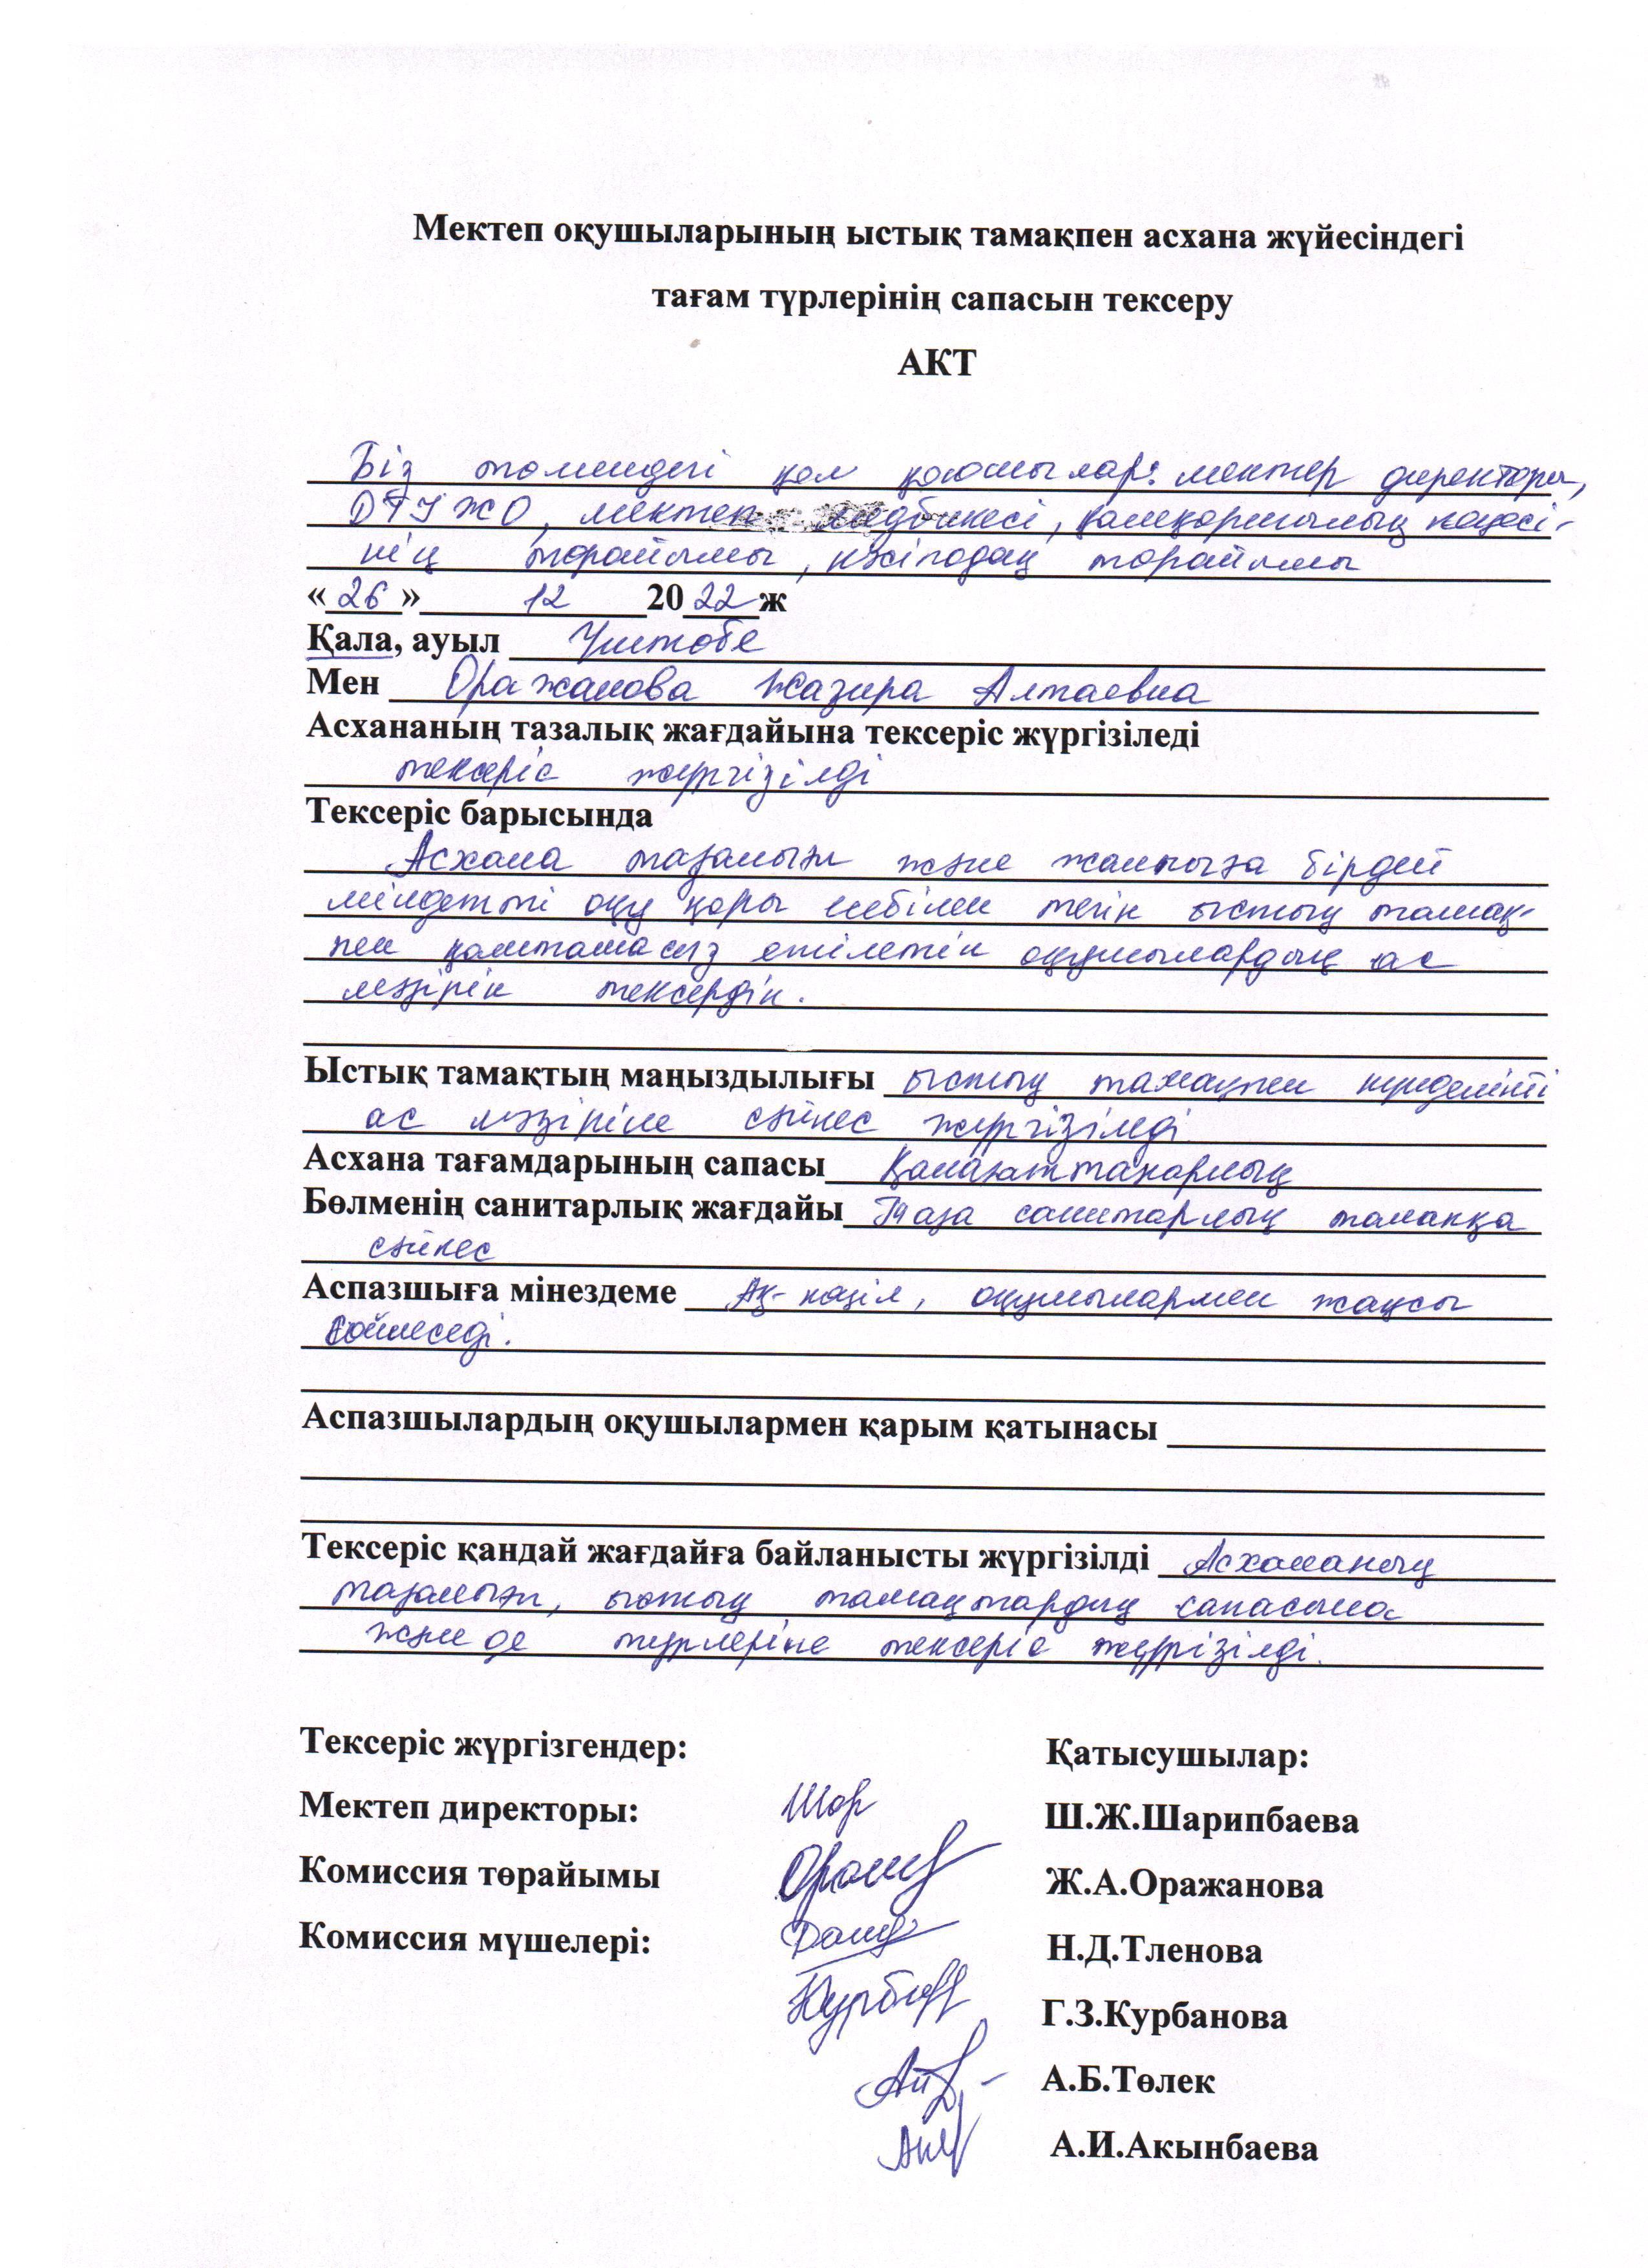 Мектеп оқушыларының ыстық тамақпен асхана жүйесіндегі
тағам түрлерінің сапасын тексеру
АКТ
Біз төмендегі қол қоюшылар: мектер директоры,
ДТІЖО, мектеп медбикесі, қамқоршылық кеңесі-
нің төрайымы, кәсіподақ төрайымы
«26» 12 2022 ж
Қала, ауыл Үштобе
Мен Оражанова Жазира Алтаевна
Асхананың тазалық жағдайына тексеріс жүргізіледі
тексеріс жүргізілді
Тексеріс барысында
Асхана тазалығы және жалпыға бірдей
міндетті оқу қоры есебінен тегін ыстық тамақ-
пен қамтамасыз етілетін оқушылардың ас
мәзірін тексердік.
Ыстық тамақтың маңыздылығы ыстық тамақпен күнделікті
ас мәзіріне сәйкес жүргізіледі
Асхана тағамдарының сапасы Қанағаттанарлық
Бөлменің санитарлық жағдайы Таза санитарлық талапқа
сәйкес
Аспазшыға мінездеме Ақ-көңіл, оқушылармен жақсы
сөйлеседі.
Аспазшылардың оқушылармен қарым қатынасы
Тексеріс қандай жағдайға байланысты жүргізілді Асхананың
тазалығы, ыстық тамақтардың сапасына
және де түрлеріне тексеріс жүргізілді.
Тексеріс жүргізгендер: Қатысушылар:
Мектеп директоры: Ш.Ж.Шарипбаева
Комиссия төрайымы Ж.А.Оражанова
Комиссия мүшелері: Н.Д.Тленова
Г.З.Курбанова
А.Б.Төлек
А.И.Акынбаева